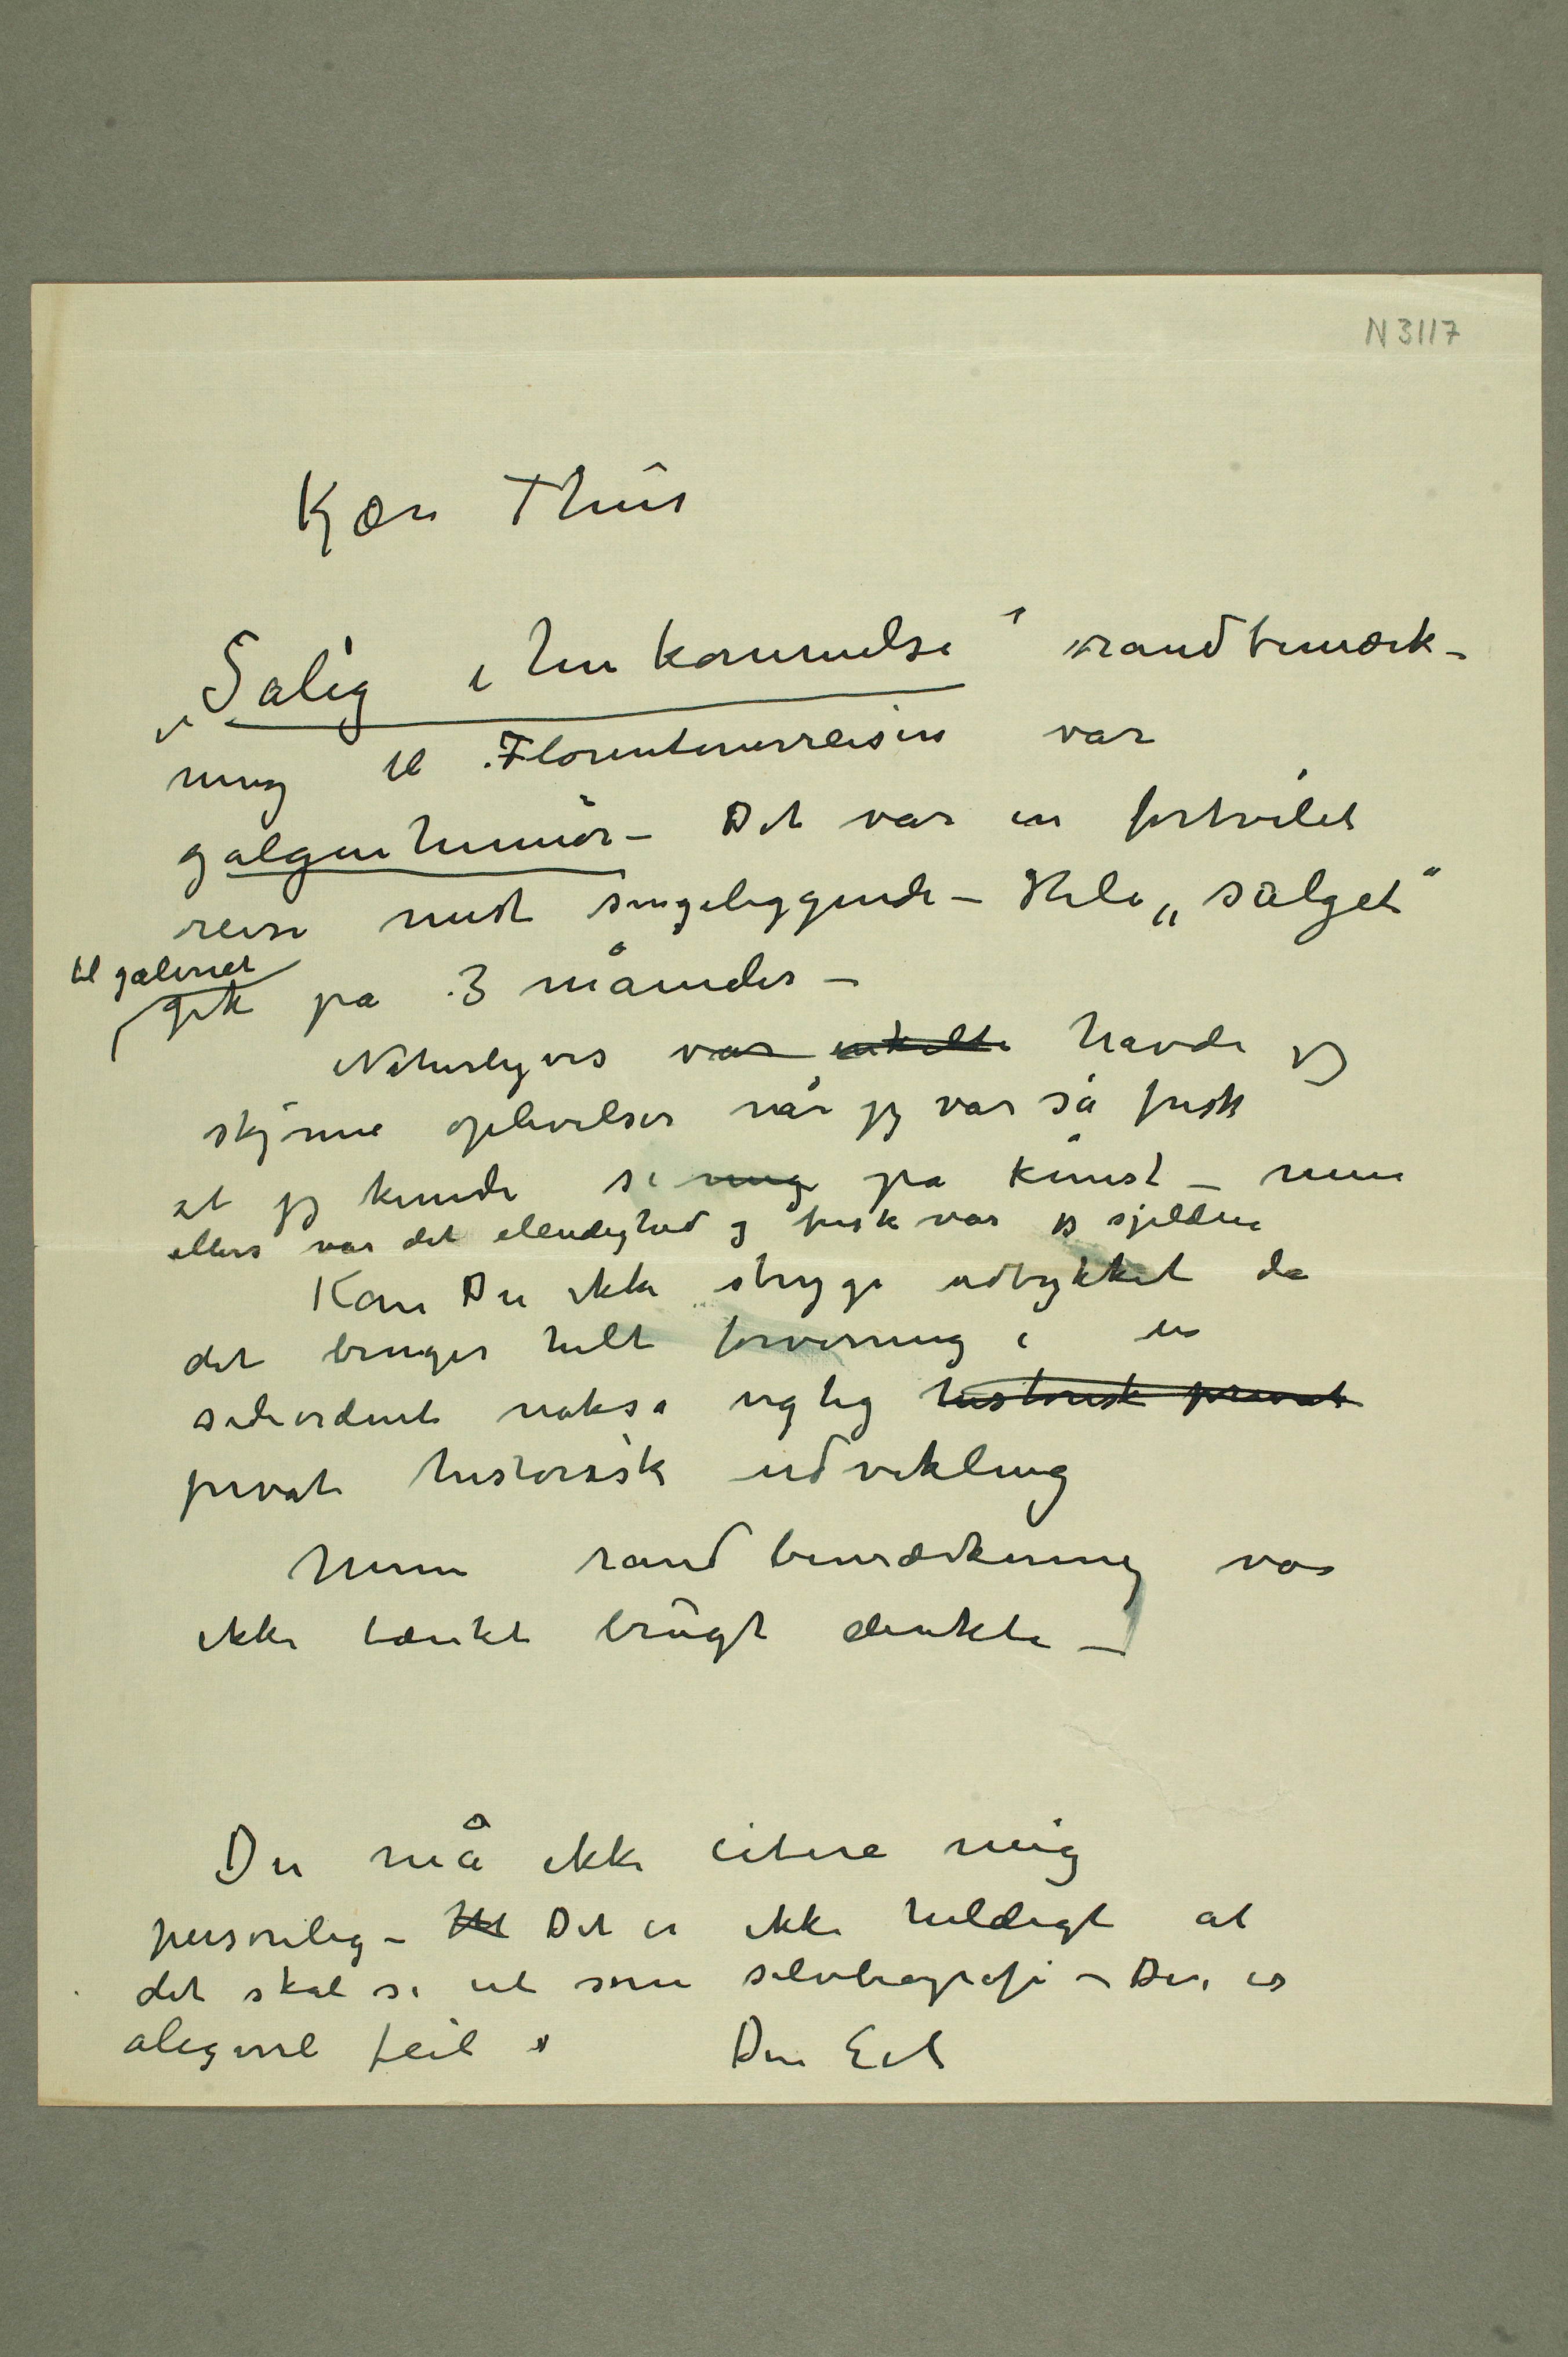 N 3117
Kjære Thiis
„Salig ihukommelse“ randbemærk-
ning til Florentinerreisen var
galgenhumør – Det var en fortvilet
reise mest sengeliggende – Hele „salget“
til galleriet
gik på 3 måneder –
Naturligvis var enkelte havde jeg
skjønne oplevelser når jeg var så frisk
at jeg kunde se mig på kunst – men
ellers var det elendighed og frisk var jeg sjelden
Kan Du ikke stryge udtrykket da
det bringer helt forvirring i en
sideordent nokså vigtig historisk privat
privat historisk udvikling
Min randbemærkning var
ikke tænkt brugt direkte –
Du må ikke citere mig
personlig – Det er ikke heldigt at
det skal se ut som selvbiografi – Det er
aligevel feil
Din E M